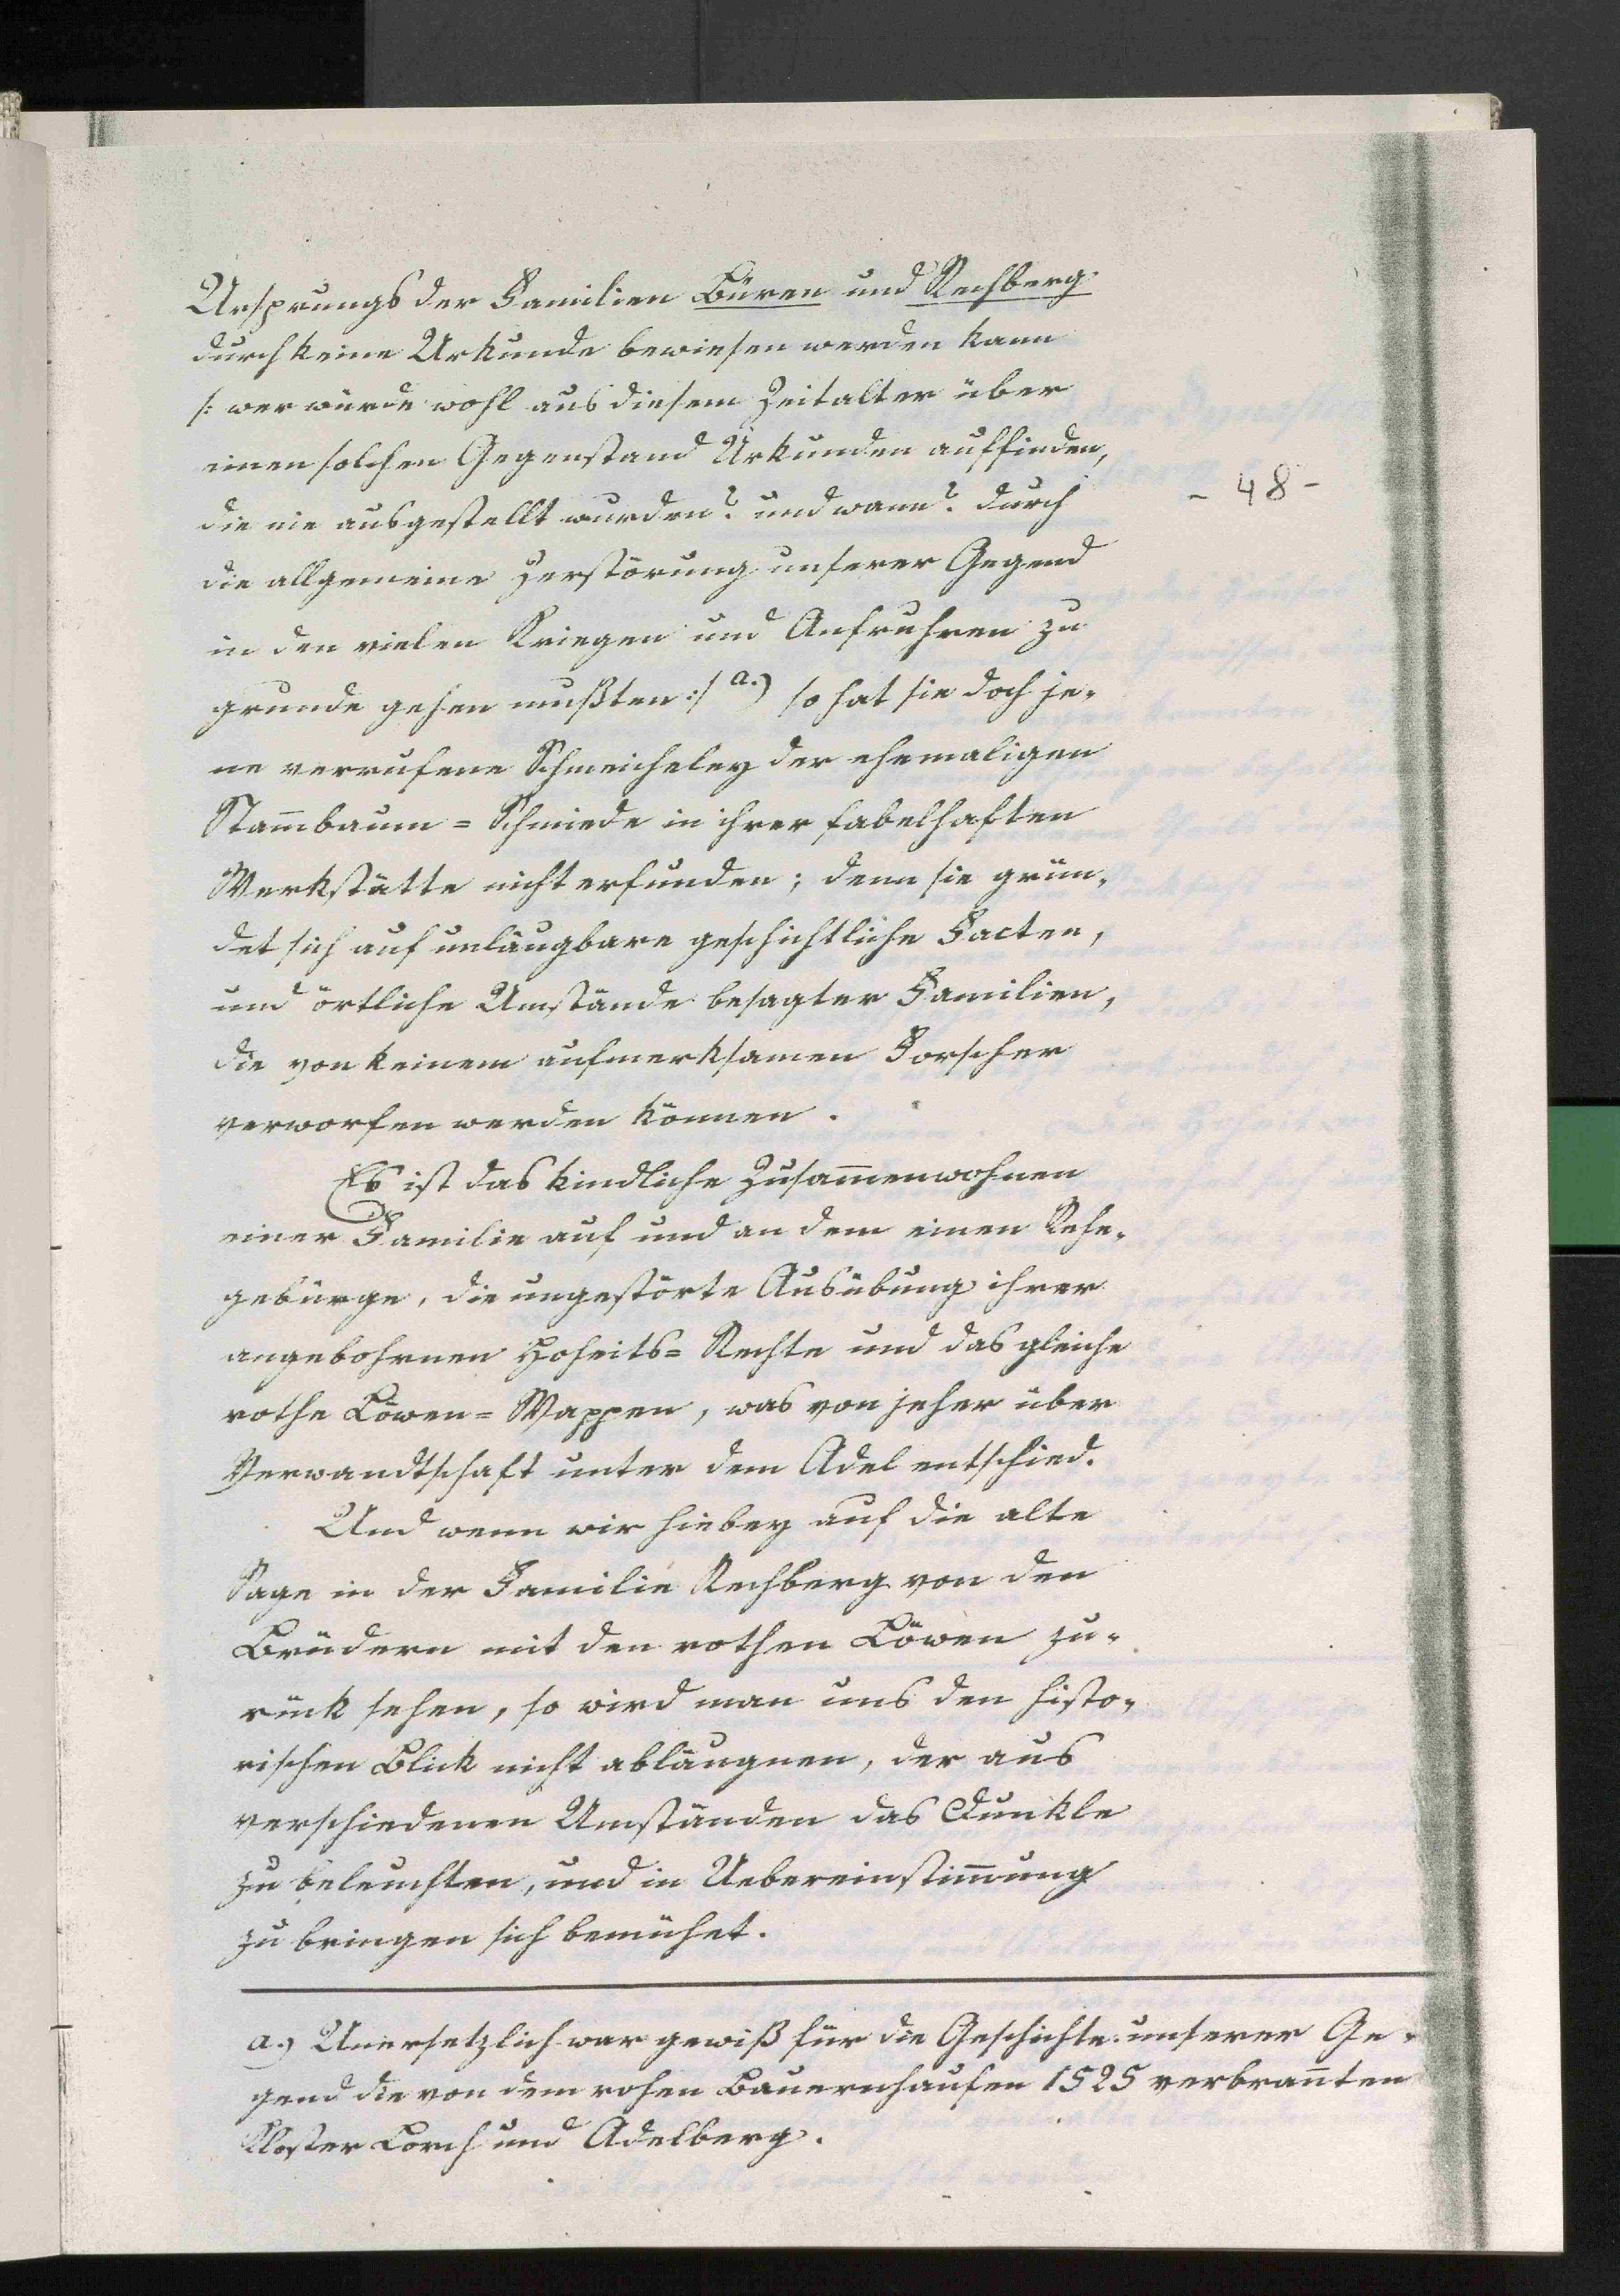 Ursprungs der Familien Büren und Rechberg
durch keine Urkunde bewiesen werden kann
/: wer würde wohl aus diesem Zeitalter über
einen solchen Gegenstand Urkunden auffinden,
die nie ausgestellt wurden? und wann? durch
- 48 -
die allgemeine Zerstörung unserer Gegend
in den vielen Kriegen und Aufruhren zu
grunde gehen mußten :/ a.) so hat sie doch je-
ne verrufene Schmeicheley der ehemaligen
Stam̅baum = Schmiede in ihrer fabelhaften
Werkstätte nicht erfunden; denn sie grün-
det sich auf unläugbare geschichtliche Facten,
und örtliche Umstände besagter Familien,
die von keinem aufmerksamen Forscher
verworfen werden können.
Es ist das kindliche Zusam̅enwohnen
einer Familie auf und an dem einen Rehe-
gebürge, die ungestörte Ausübung ihrer
angebohrnen Hoheits= Rechte und das gleiche
rothe Löwen= Wappen, was von jeher über
Verwandtschaft unter dem Adel entschied.
Und wenn wir hiebey auf die alte
Sage in der Familie Rechberg von den
Brüdern mit den rothen Löwen zu-
rück sehen, so wird man uns den histo-
rischen Blick nicht abläugnen, der aus
verschiedenen Umständen das Dunkle
zu beleuchten, und in Uebereinstim̅ung
zu bringen sich bemühet.
a.) Unersetzlich war gewiß für die Geschichte unserer Ge-
gend die von dem rohen Bauernhaufen 1525 verbran̅ten
Kloster Lorch und Adelberg.